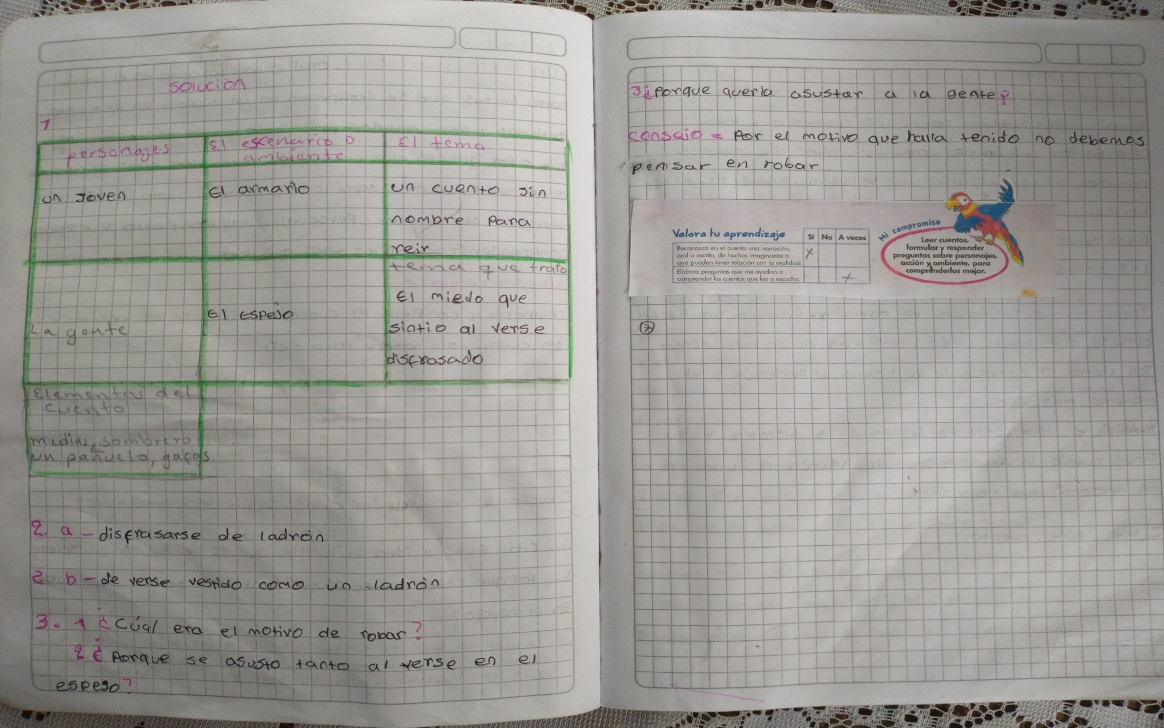 Solución
1
personajes
El escenario o
ambiente
El tema
un Joven
El armario
un cuento sin
nombre para
reir
La gente
El espejo
tema que trato
El miedo que
sintio al verse
disfrasado
Elementos del
cuento
medias, sombrero
un pañuelo, gafas
2. a - disfrasarse de ladrón
2 b - de verse vestido como un ladrón
3. 1 ¿Cúal era el motivo de robar?
2 ¿ Porque se asusto tanto al verse en el
espeso?
3 ¿ Porque queria asustar a la gente?
consejo = Por el motivo que halla tenido no debemos
pensar en robar
Valora tu aprendizaje
Sí No A veces
Reconozco en el cuento una narración,
oral o escrita, de hechos imaginarios o
que pueden tener relación con la realidad.
X
Elaboro preguntas que me ayudan a
comprender los cuentos que leo o escucho.
X
Mi compromiso
Leer cuentos,
formular y responder
preguntas sobre personajes,
acción y ambiente, para
comprenderlos mejor.